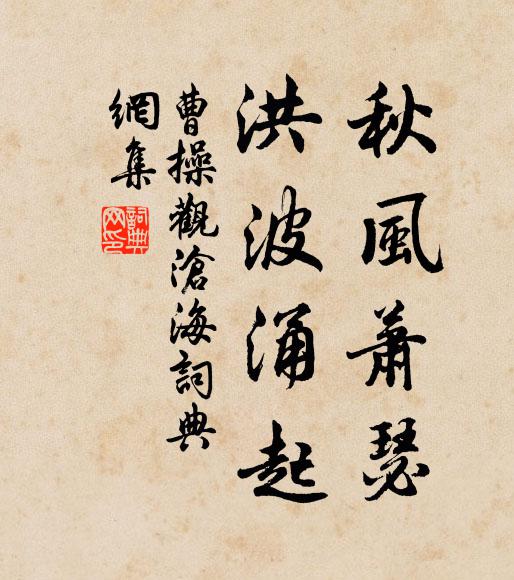 秋風蕭瑟
洪波涌起
曹操觀滄海詞典
網集
詞典
网印